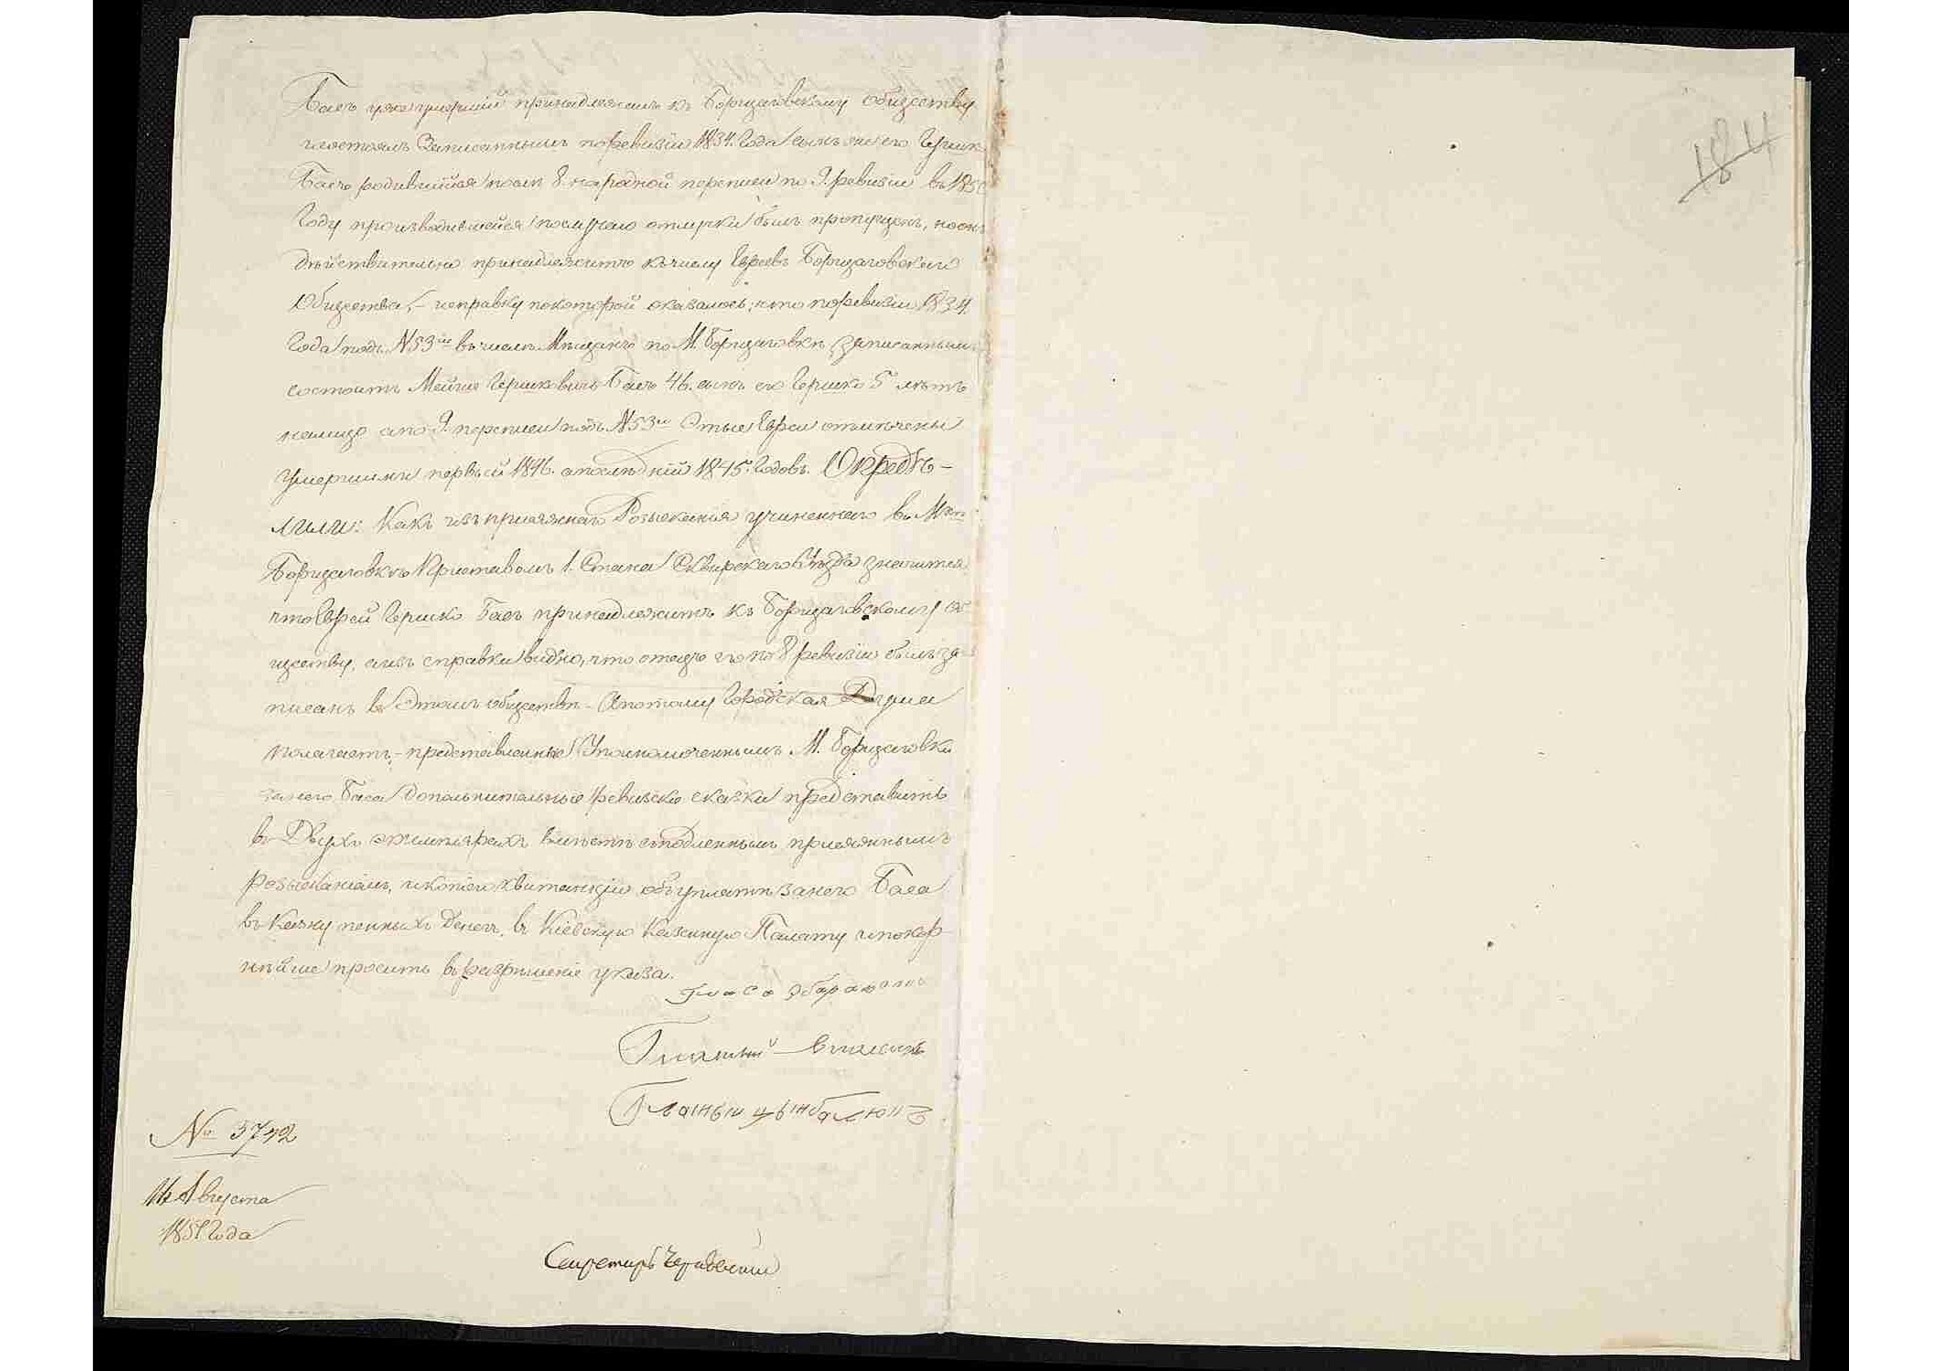 Басъ уже умершій принадлежалъ къ Борщаговскому обществу
записаннымъ по ревизіи 1834. года сынъ же его Гершко
Басъ родившійся послѣ 8. народной переписи по 9. ревизіи въ 1850
году производившейся по случаю отлучки былъ пропущенъ, но онъ
дѣйствительно принадлежитъ къ числу Евреевъ Борщаговскаго
Общества, – исправку по которой оказалось; что по ревизіи 1834.
года подъ N 53мъ въ числѣ Мѣщанъ по М. Борщаговкѣ записаннымъ
состоитъ Гершковичъ Басъ 46. сынъ его Гершко 5 лѣтъ
на лицо а по 9. переписи подъ N 53мъ Этые Евреи отмѣчены
умершими первый 1846. а послѣдній 1845. годовъ. Опредѣ–
лили: Какъ изъ присяжнаго Розысканія учиненнаго въ Мѣст:
Борщаговкѣ Приставомъ 1. Стана Сквирскаго Уѣзда значится
что Еврей Гершко Басъ принадлежитъ къ Борщаговскому об
ществу, а изъ справки видно, что отецъ его по 8 ревизіи былъ за–
писанъ въ Этомъ обществѣ – А потому Городская Дума
полагаетъ, – представленные Уполномоченнымъ М. Борщаговки
за него Баса дополнительные ревизскіе сказки представить
въ Двухъ экземплярахъ вмѣстѣ съ подленнымъ присяжнымъ
розысканіемъ, и копіею квитанціи объ уплатѣ за него Баса
въ Казну пенныхъ денегъ, въ Кіевскую Казенную Палату и покор
нѣйше просить въ разрѣшеніе указа.
Гласный
Гласный Цымбалюкъ
№ 3742
14 Августа
1851 Года
Секретарь
184